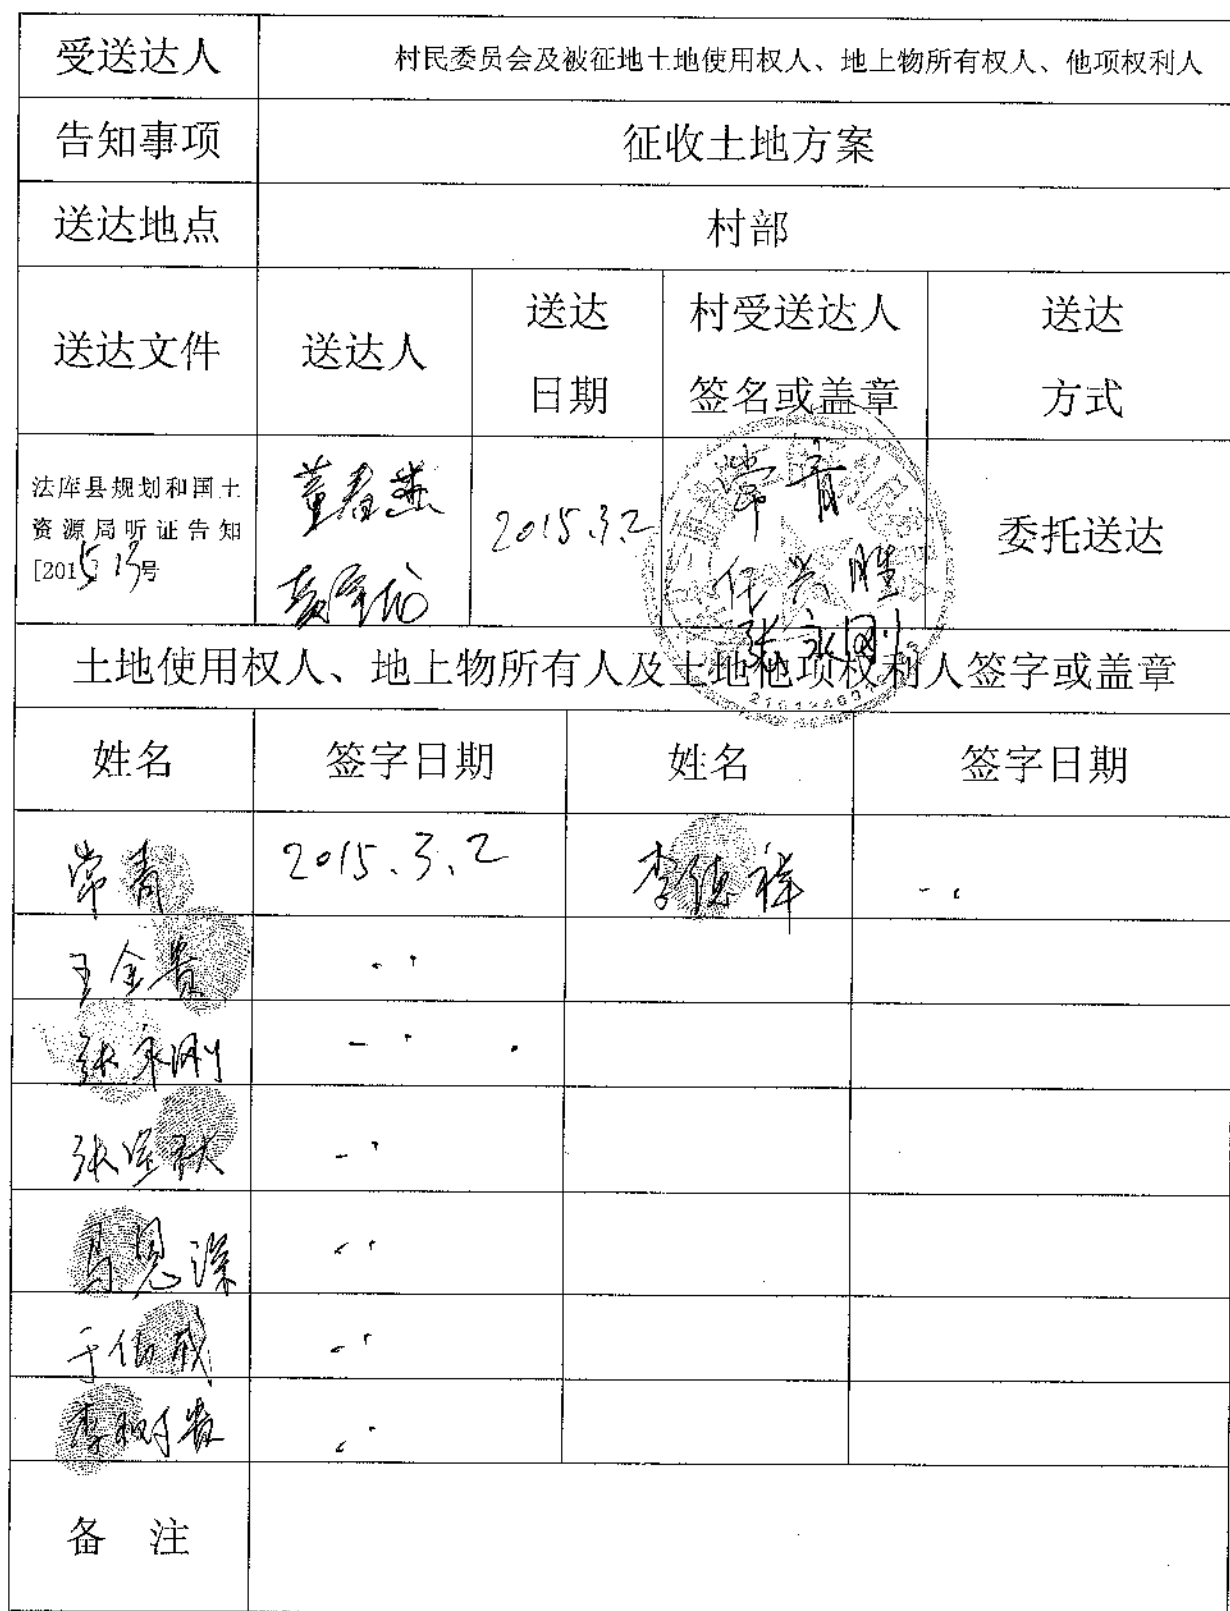 受送达人
村民委员会及被征地土地使用权人、地上物所有权人、他项权利人
告知事项
征收土地方案
送达地点
村部
送达文件
送达人
送达
日期
村受送达人
签名或盖章
送达
方式
法库县规划和国土
资源局听证告知
[2015 13号
董春燕
2015.3.2
常青
任兴胜
张永刚
委托送达
土地使用权人、地上物所有人及土地他项权利人签字或盖章
姓名
签字日期
姓名
签字日期
常青
2015.3.2
李德祥
王金贵
张永刚
马恩深
于伯成
李树贵
备 注